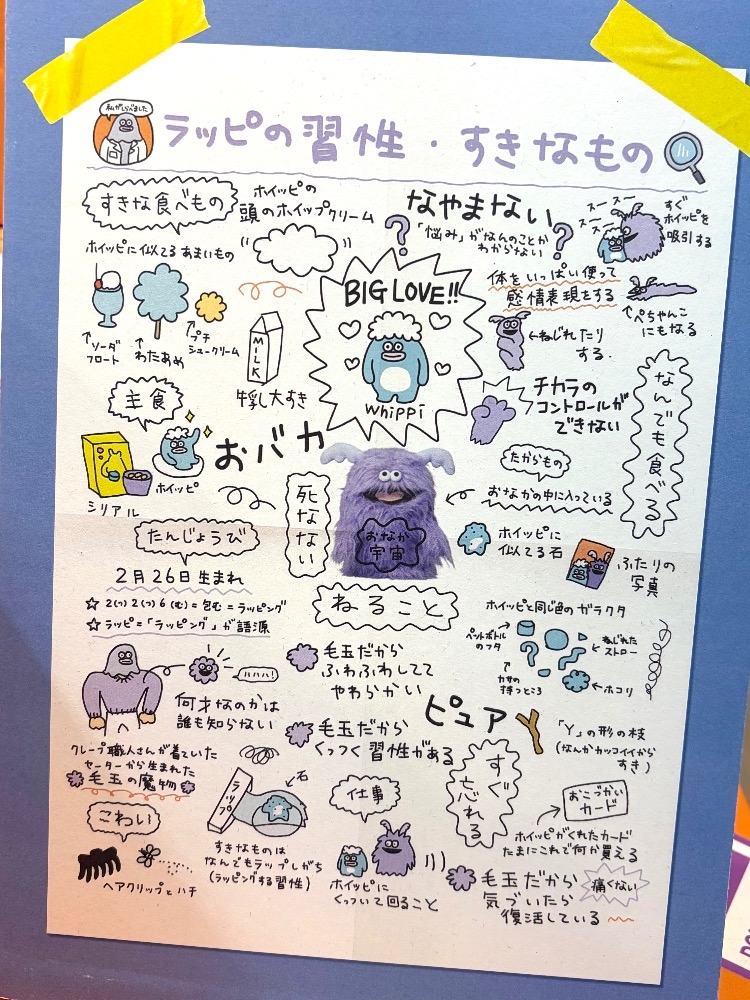 私がしらべました
ラッピの習性・すきなもの
すきな食べもの
ホイッピの
頭のホイップクリーム
ホイッピに似てるあまいもの
ソーダ
フロート
わたあめ
プチ
シュークリーム
MILK
牛乳大すき
主食
シリアル
ホイッピ
なやまない
「悩み」がなんのことか
わからない
スースー
スースー
すぐ
ホイッピを
吸引する
BIG LOVE!!
Whippi
体をいっぱい使って
感情表現をする
ぺちゃんこ
にもなる
ねじれたり
する.
チカラの
コントロールが
できない
なんでも食べる
おバカ
死なない
おなか
宇宙
たからもの
おなかの中に入っている
ホイッピに
似てる石
ふたりの
写真
たんじょうび
2月26日生まれ
☆2(つ)2(つ)6(む)=包む=ラッピング
☆ラッピ=「ラッピング」が語源
ねること
ホイッピと同じ色のガラクタ
ペットボトル
のフタ
ねじれた
ストロー
カサの
持つところ
ホコリ
ハハハ!
何才なのかは
誰も知らない
クレープ職人さんが着ていた
セーターから生まれた
毛玉の魔物
毛玉だから
ふわふわしてて
やわらかい
毛玉だから
くっつく習性がある
ピュア
「Y」の形の枝
(なんかカッコイイから
すき)
こわい
ヘアクリップとハチ
ラップ
石
すきなものは
なんでもラップしがち
(ラッピングする習性)
仕事
ホイッピに
くっついて回ること
すぐ忘れる
おこづかい
カード
ホイッピがくれたカード
たまにこれで何か買える
毛玉だから
気づいたら
復活している
痛くない